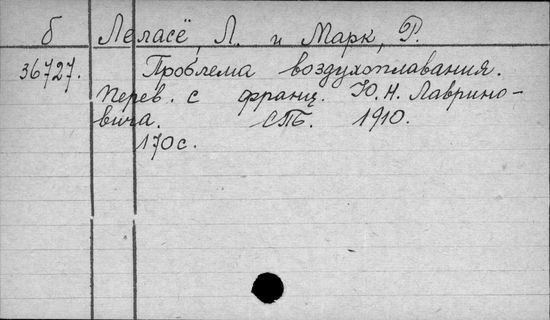 б Леласё, Л. и Марк, Р.
36727. Проблема воздухоплавания.
Перев. с франц. Ю.Н. Лаврино-
вича. СПБ. 1910.
170с.